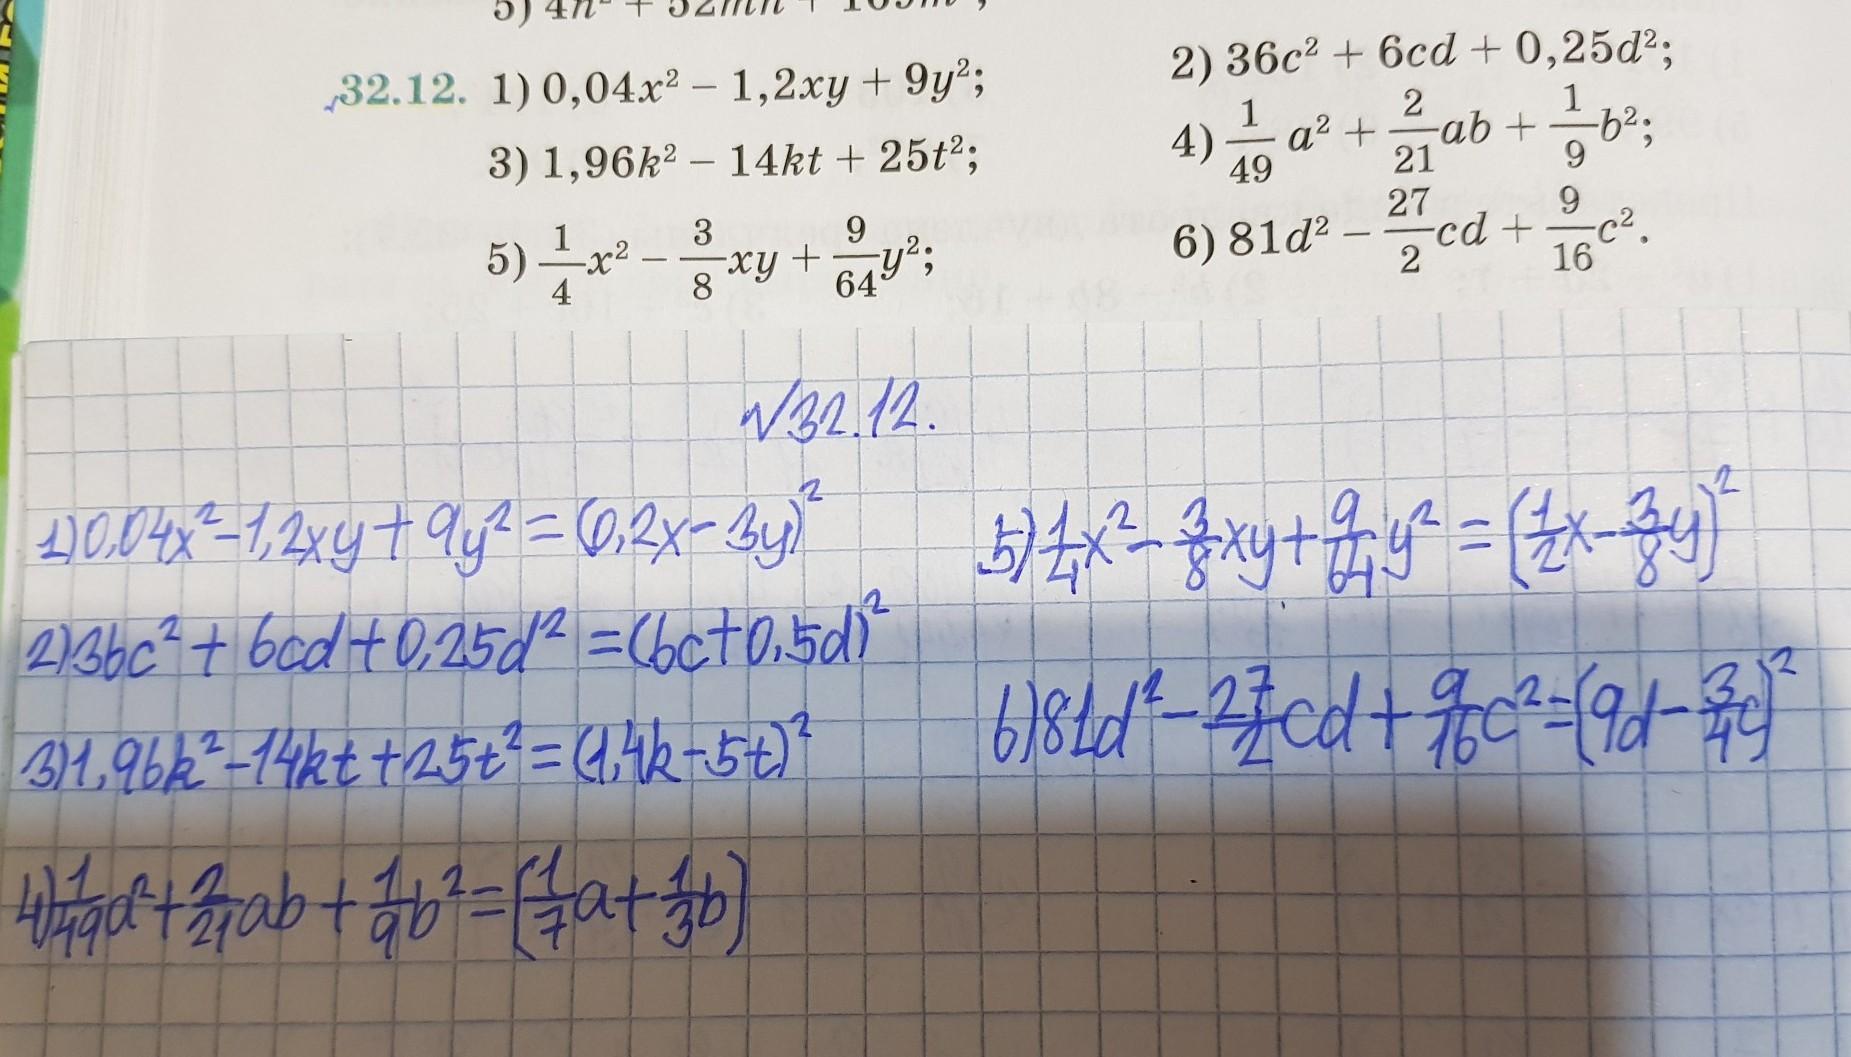 5) 4n² + 52mn + 169m²;
32.12. 1) 0,04x² – 1,2xy + 9y²;
2) 36c² + 6cd + 0,25d²;
3) 1,96k² – 14kt + 25t²;
4) 1/49 a² + 2/21 ab + 1/9 b²;
5) 1/4 x² – 3/8 xy + 9/64 y²;
6) 81d² – 27/2 cd + 9/16 c².
№32.12.
1) 0,04x² – 1,2xy + 9y² = (0,2x – 3y)²
2) 36c² + 6cd + 0,25d² = (6c + 0,5d)²
3) 1,96k² – 14kt + 25t² = (1,4k – 5t)²
4) 1/49 a² + 2/21 ab + 1/9 b² = (1/7 a + 1/3 b)
5) 1/4 x² – 3/8 xy + 9/64 y² = (1/2 x – 3/8 y)²
6) 81d² – 27/2 cd + 9/16 c² = (9d – 3/4 c)²